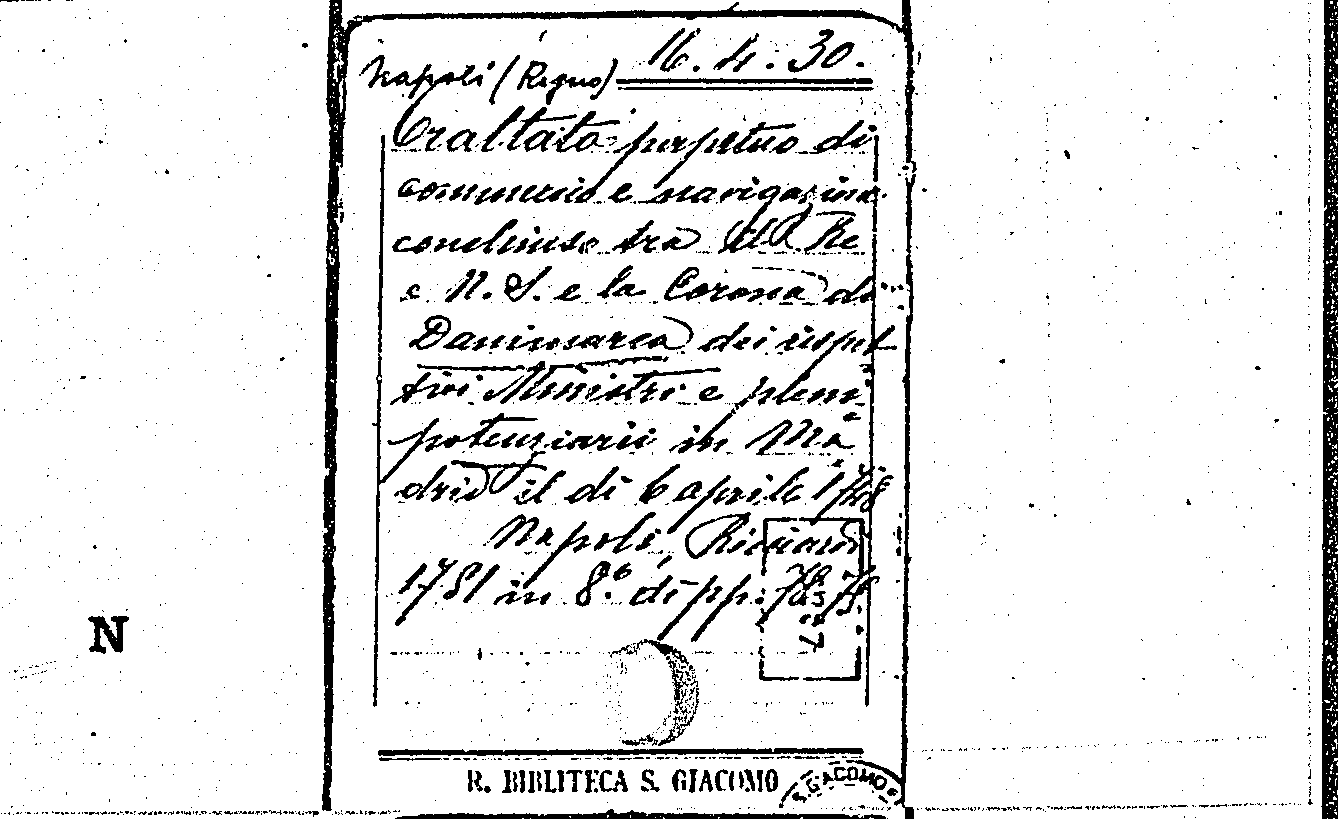 16. 4. 30.
Napoli (Regno)
Trattato perpetuo di
commercio e navigazione
conchiuso tra il Re
e N. S. e la Corona di
Danimarca dei rispet
tivi Ministri e pleni
potenziarii in Ma
drid il di 6 aprile 1748
Napoli, Ricciardi
1751 in 8.° di pp.
N
R. BIBLITECA S. GIACOMO
S. GIACOMO